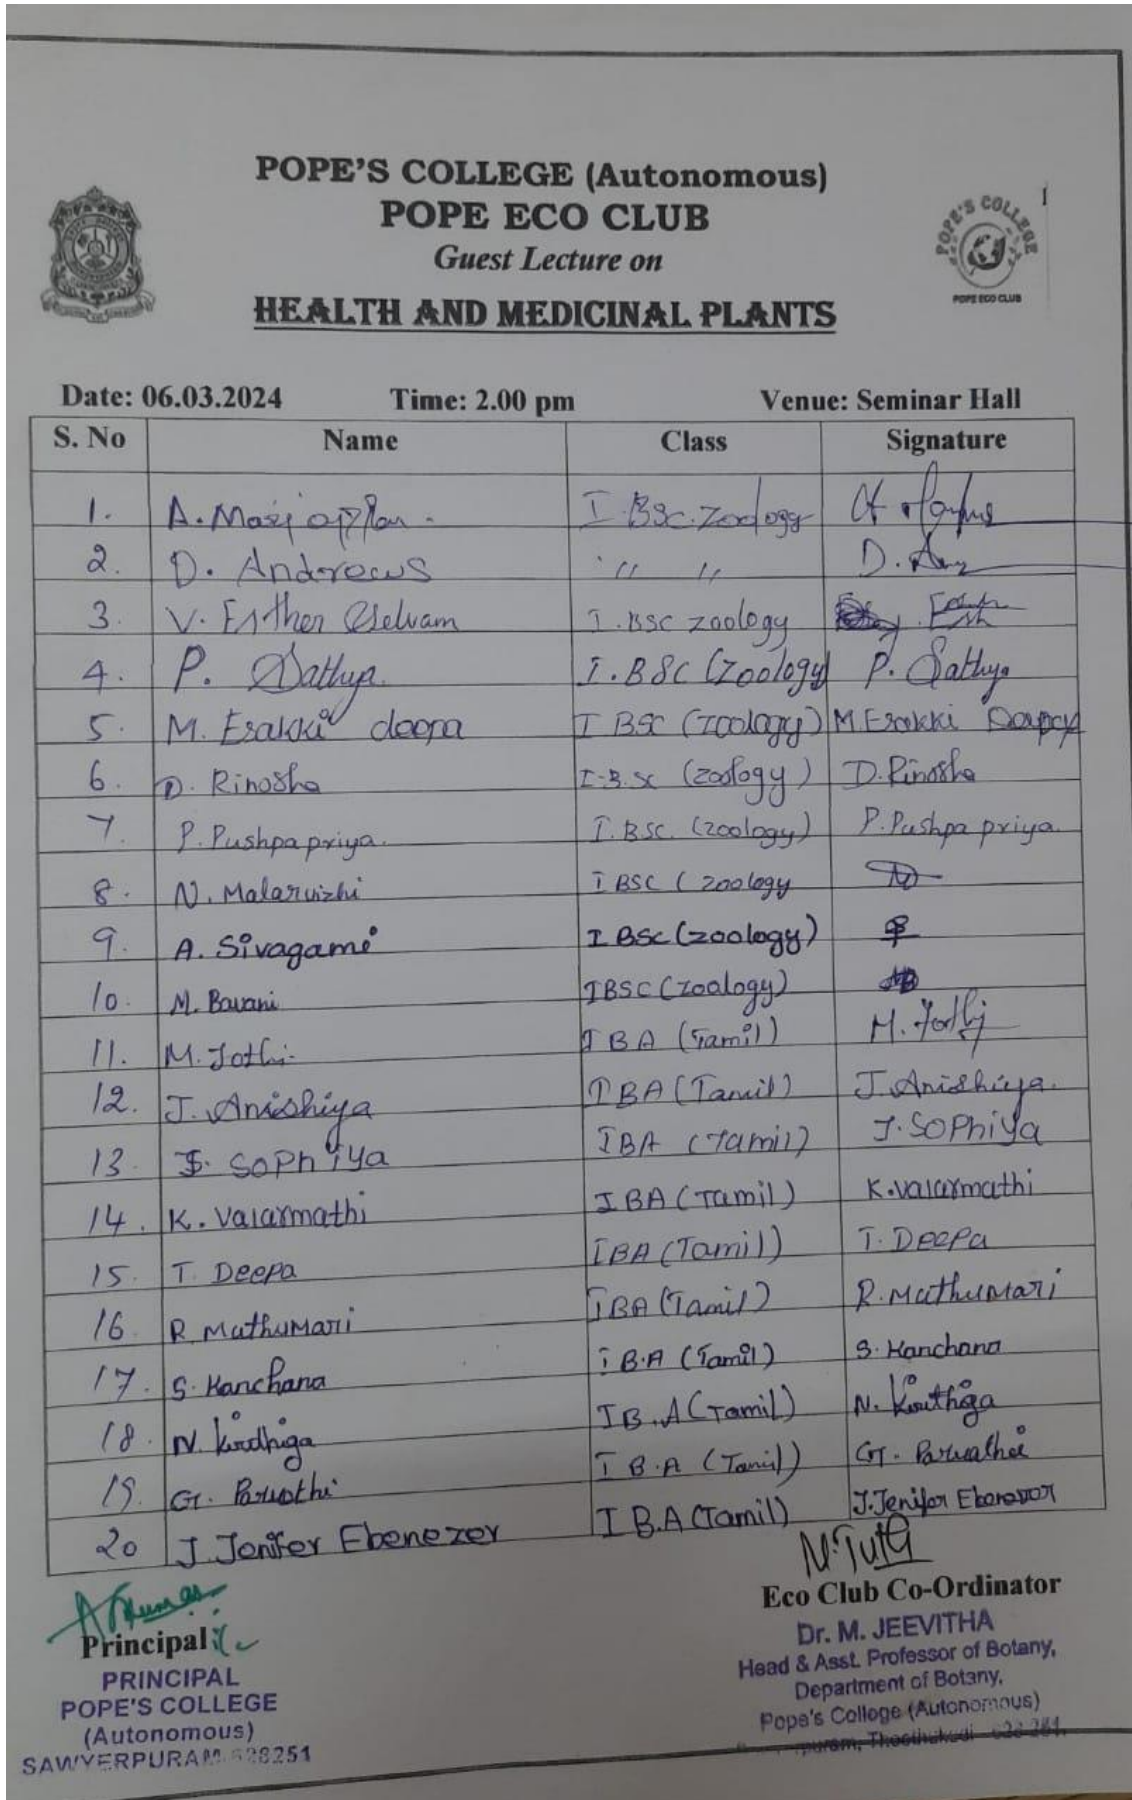 POPE'S COLLEGE (Autonomous)
POPE ECO CLUB
Guest Lecture on
HEALTH AND MEDICINAL PLANTS
POPE'S COLLEGE
POPE ECO CLUB
1
Date: 06.03.2024 Time: 2.00 pm Venue: Seminar Hall
S. No Name Class Signature
1. A. I. BSc. Zoology
2. D. Andrews " " D.
3. V. Esther Selvam I. BSC zoology
4. P. Sathya I. BSC (Zoology) P. Sathya
5. M. Esakki deepa I BSC (zoology) M. Esakki
6. D. Rinosha I. B. SC (zoology) D. Rinosha
7. P. Pushpa priya. I. BSC. (zoology) P. Pushpa priya.
8. N. Malarvizhi I BSC ( zoology
9. A. Sivagami I BSc (zoology)
10. M. Bavani I BSC (zoology)
11. M. Jothi. I BA (Tamil) M. Jothi
12. J. Anishiya I BA (Tamil) J. Anishiya.
13. J. SoPhiya I BA (Tamil) J. SOPhiya
14. K. Valarmathi I BA (Tamil) K. valarmathi
15. T. Deepa I BA (Tamil) T. Deepa
16 R. Muthumari I BA (Tamil) R. Muthumari
17. S. Kanchana I B.A (Tamil) S. Kanchana
18. N. Kirdhiga I B.A (Tamil) N. Kiruthiga
19. G. Parvathi I B.A (Tamil) G. Parvathi
20 J. Jenifer Ebenezer I B.A (Tamil) J. Jenifer Ebenezer
Principal
PRINCIPAL
POPE'S COLLEGE
(Autonomous)
SAWYERPURAM-628251
Eco Club Co-Ordinator
Dr. M. JEEVITHA
Head & Asst. Professor of Botany,
Department of Botany,
Pope's College (Autonomous)
Thoothukudi - 628 251.